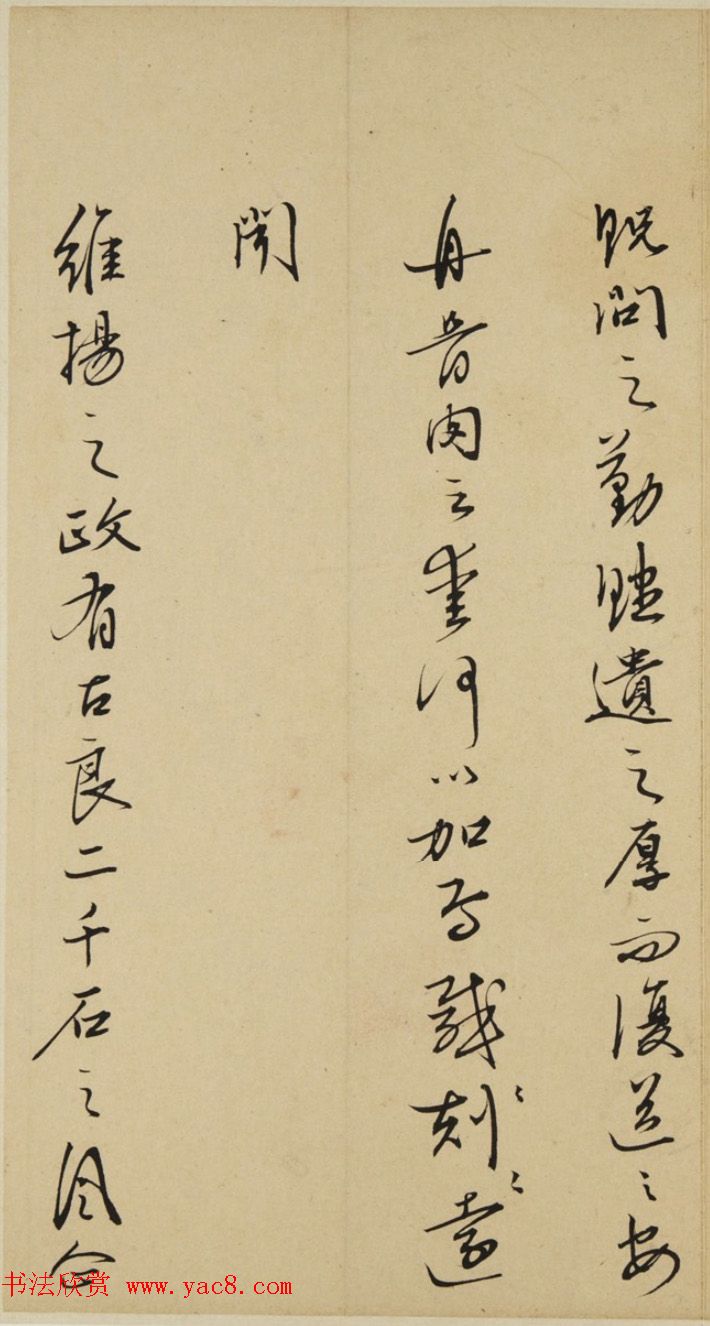 貺問之勤贐遺之厚而復送之安
舟骨肉之愛何以加焉刻〻遠
聞
維揚之政有古良二千石之風今
书法欣赏 www.yac8.com